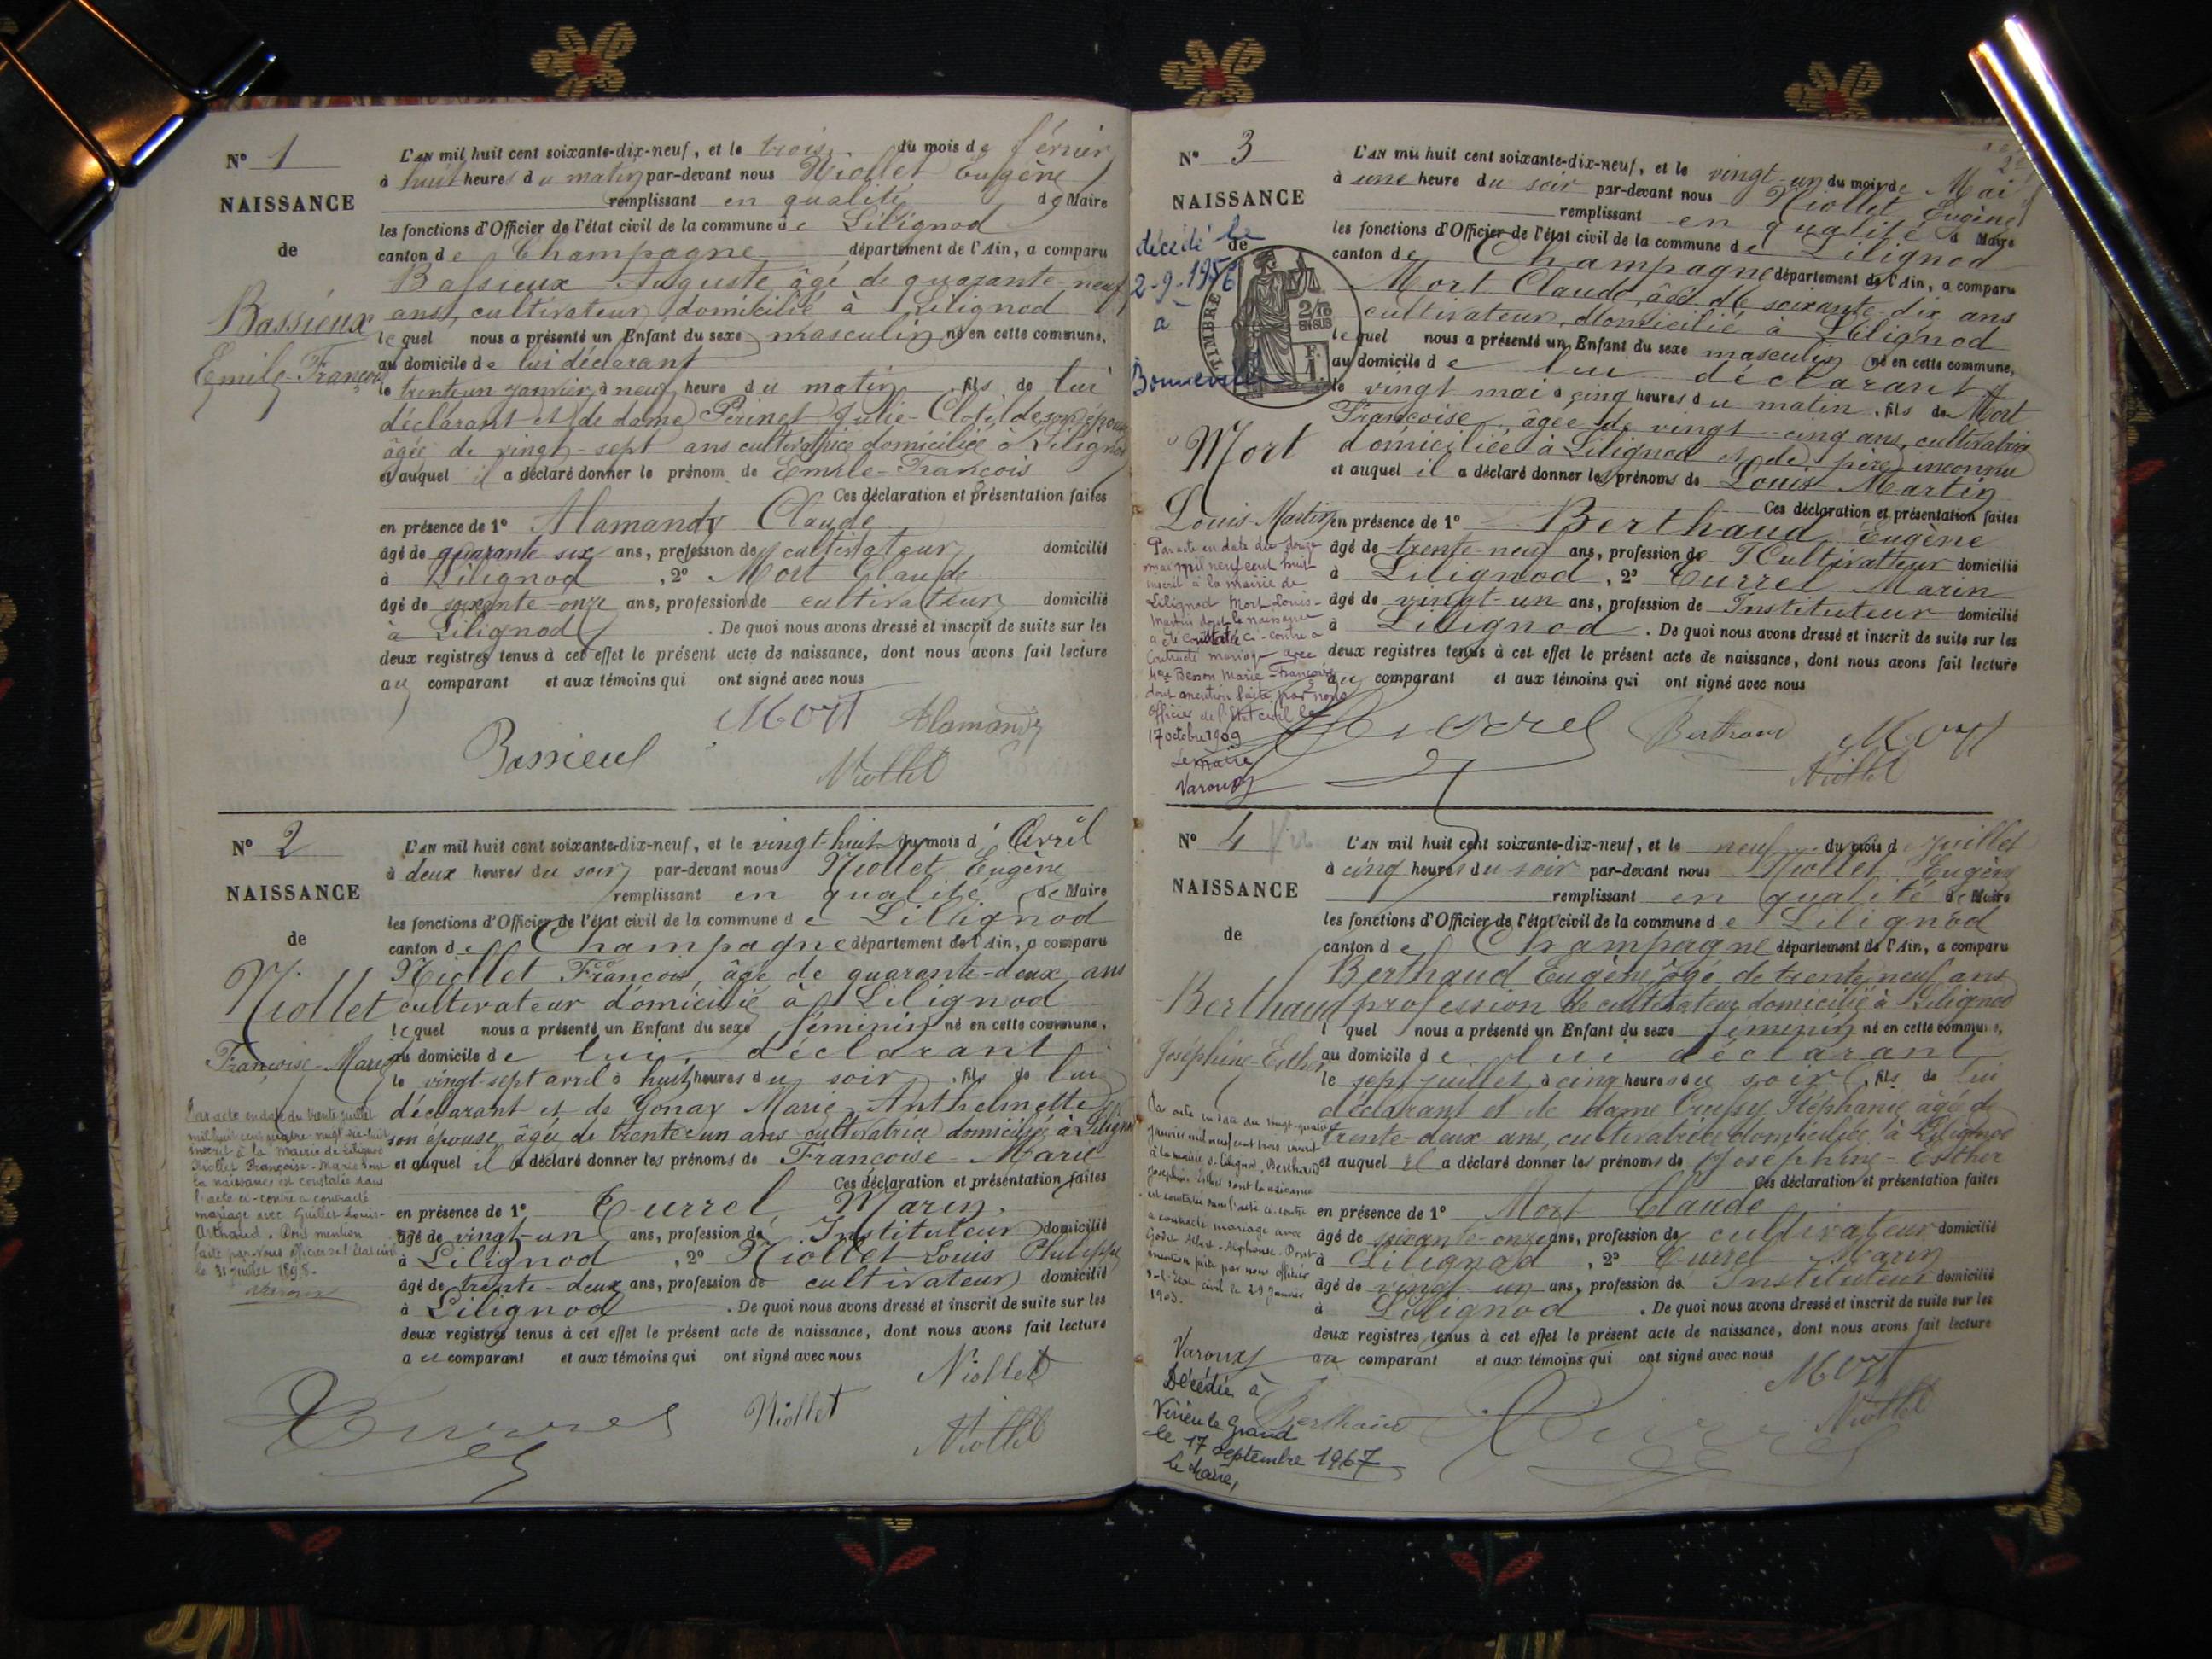 N° 1
NAISSANCE
de
Bassieux
Emile-François
L'AN mil huit cent soixante-dix-neuf, et le trois du mois de février
à huit heures du matin par-devant nous Niollet Eugène
remplissant en qualité de Maire
les fonctions d'Officier de l'état civil de la commune de Lilignod
canton de Champagne département de l'Ain, a comparu
Bassieux Auguste âgé de quarante-neuf
ans, cultivateur domicilié à Lilignod
lequel nous a présenté un Enfant du sexe masculin né en cette commune,
au domicile de lui déclarant
le trente un janvier à neuf heure du matin, fils de lui
déclarant et de dame Perinet Julie-Clotilde son épouse
âgée de vingt-sept ans cultivatrice domiciliée à Lilignod
et auquel il a déclaré donner le prénom de Emile-François
Ces déclaration et présentation faites
en présence de 1° Alamandy Claude
âgé de quarante six ans, profession de cultivateur domicilié
à Lilignod, 2° Mort Claude
âgé de soixante-onze ans, profession de cultivateur domicilié
à Lilignod. De quoi nous avons dressé et inscrit de suite sur les
deux registres tenus à cet effet le présent acte de naissance, dont nous avons fait lecture
au comparant et aux témoins qui ont signé avec nous
Mort Alamandy
Bassieux
Niollet
N° 2
NAISSANCE
de
Niollet
Françoise-Marie
Par acte en date du trente juillet
mil huit cent quatre-vingt-dix-huit
inscrit à la Mairie de Lilignod
Niollet Françoise-Marie dont
la naissance est constatée dans
l'acte ci-contre a contracté
mariage avec Guillet Louis-
Arthaud. Dont mention
faite par nous officier de l'état civil
le 31 juillet 1898.
Varoux
L'AN mil huit cent soixante-dix-neuf, et le vingt-huit du mois d'Avril
à deux heures du soir par-devant nous Niollet Eugène
remplissant en qualité de Maire
les fonctions d'Officier de l'état civil de la commune de Lilignod
canton de Champagne département de l'Ain, a comparu
Niollet Fcois François, âgé de quarante-deux ans
cultivateur domicilié à Lilignod
lequel nous a présenté un Enfant du sexe féminin né en cette commune,
au domicile de lui, déclarant
le vingt-sept avril à huit heures du soir, fils de lui
déclarant et de Gonay Marie Anthelmette
son épouse, âgée de trente-un ans cultivatrice domiciliée à Lilignod
et auquel il a déclaré donner les prénoms de Françoise-Marie
Ces déclaration et présentation faites
en présence de 1° Currel Marin
âgé de vingt-un ans, profession de Instituteur domicilié
à Lilignod, 2° Niollet Louis Philippe
âgé de trente-deux ans, profession de cultivateur domicilié
à Lilignod. De quoi nous avons dressé et inscrit de suite sur les
deux registres tenus à cet effet le présent acte de naissance, dont nous avons fait lecture
au comparant et aux témoins qui ont signé avec nous
Niollet
Currel Niollet
Niollet
N° 3
NAISSANCE
de
décédé le
2-9-1956
à
Bonneville
TIMBRE
2/10
EN SUS
F.
1
Mort
Louis Martin
Par acte en date du douze
mai mil neuf cent huit
inscrit à la mairie de
Lilignod Mort Louis-
Martin dont la naissance
a été constatée ci-contre a
contracté mariage avec
Melle Besson Marie-Françoise
dont mention faite par nous
Officier de l'Etat civil le
17 octobre 1909
Le Maire
Varoux
L'AN mil huit cent soixante-dix-neuf, et le vingt-un du mois de Mai
à une heure du soir par-devant nous Niollet Eugène
remplissant en qualité de Maire
les fonctions d'Officier de l'état civil de la commune de Lilignod
canton de Champagne département de l'Ain, a comparu
Mort Claude, âgé de soixante-dix ans
cultivateur, domicilié à Lilignod
lequel nous a présenté un Enfant du sexe masculin né en cette commune,
au domicile de lui déclarant
le vingt mai à cinq heures du matin, fils de Mort
Françoise, âgée de vingt-cinq ans, cultivatrice
domiciliée à Lilignod et de père inconnu
et auquel il a déclaré donner les prénoms de Louis Martin
Ces déclaration et présentation faites
en présence de 1° Berthaud Eugène
âgé de trente-neuf ans, profession de Cultivatteur domicilié
à Lilignod, 2° Currel Marin
âgé de vingt-un ans, profession de Instituteur domicilié
à Lilignod. De quoi nous avons dressé et inscrit de suite sur les
deux registres tenus à cet effet le présent acte de naissance, dont nous avons fait lecture
au comparant et aux témoins qui ont signé avec nous
Currel Berthaud Mort
Niollet
N° 4
NAISSANCE
de
Berthaud
Joséphine-Esther
Par acte en date du vingt-quatre
janvier mil neuf cent trois inscrit
à la mairie de Lilignod, Berthaud
Joséphine Esther dont la naissance
est constatée dans l'acte ci-contre
a contracté mariage avec
Godet Albert-Alphonse. Dont
mention faite par nous officier
de l'Etat civil le 29 Janvier
1903.
Varoux
Décédée à
Virieu le Grand
le 17 septembre 1967
le Maire,
L'AN mil huit cent soixante-dix-neuf, et le neuf du mois de juillet
à cinq heures du soir par-devant nous Niollet Eugène
remplissant en qualité de Maire
les fonctions d'Officier de l'état civil de la commune de Lilignod
canton de Champagne département de l'Ain, a comparu
Berthaud Eugène, âgé de trente neuf ans
profession de cultivateur domicilié à Lilignod
l quel nous a présenté un Enfant du sexe féminin né en cette commune,
au domicile de lui déclarant
le sept juillet à cinq heures du soir, fils de lui
déclarant et de dame Stéphanie âgée de
trente-deux ans, cultivatrice domiciliée à Lilignod
et auquel il a déclaré donner les prénoms de Joséphine-Esther
Ces déclaration et présentation faites
en présence de 1° Mort Claude
âgé de soixante-onze ans, profession de cultivateur domicilié
à Lilignod, 2° Currel Marin
âgé de vingt un ans, profession de Instituteur domicilié
à Lilignod. De quoi nous avons dressé et inscrit de suite sur les
deux registres tenus à cet effet le présent acte de naissance, dont nous avons fait lecture
au comparant et aux témoins qui ont signé avec nous
Mort
Berthaud Currel Niollet